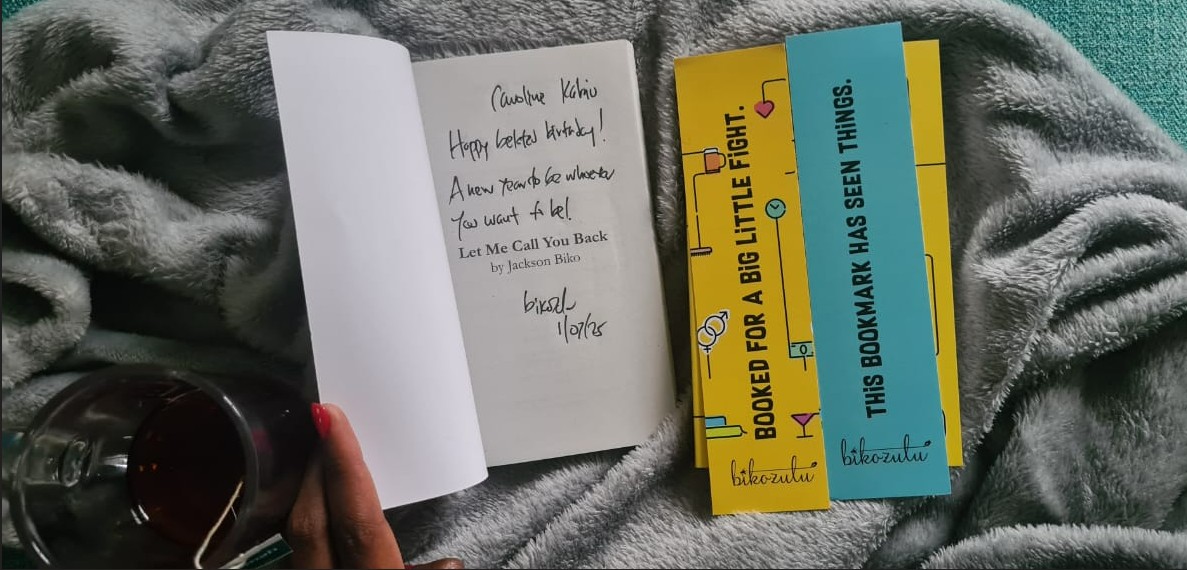 Caroline
Happy belated birthday!
A new year to be whoever
You want to be!
Let Me Call You Back
by Jackson Biko
1/07/25
BOOKED FOR A BiG LiTTLE FiGHT.
bikozulu
THiS BOOKMARK HAS SEEN THiNGS.
bikozulu